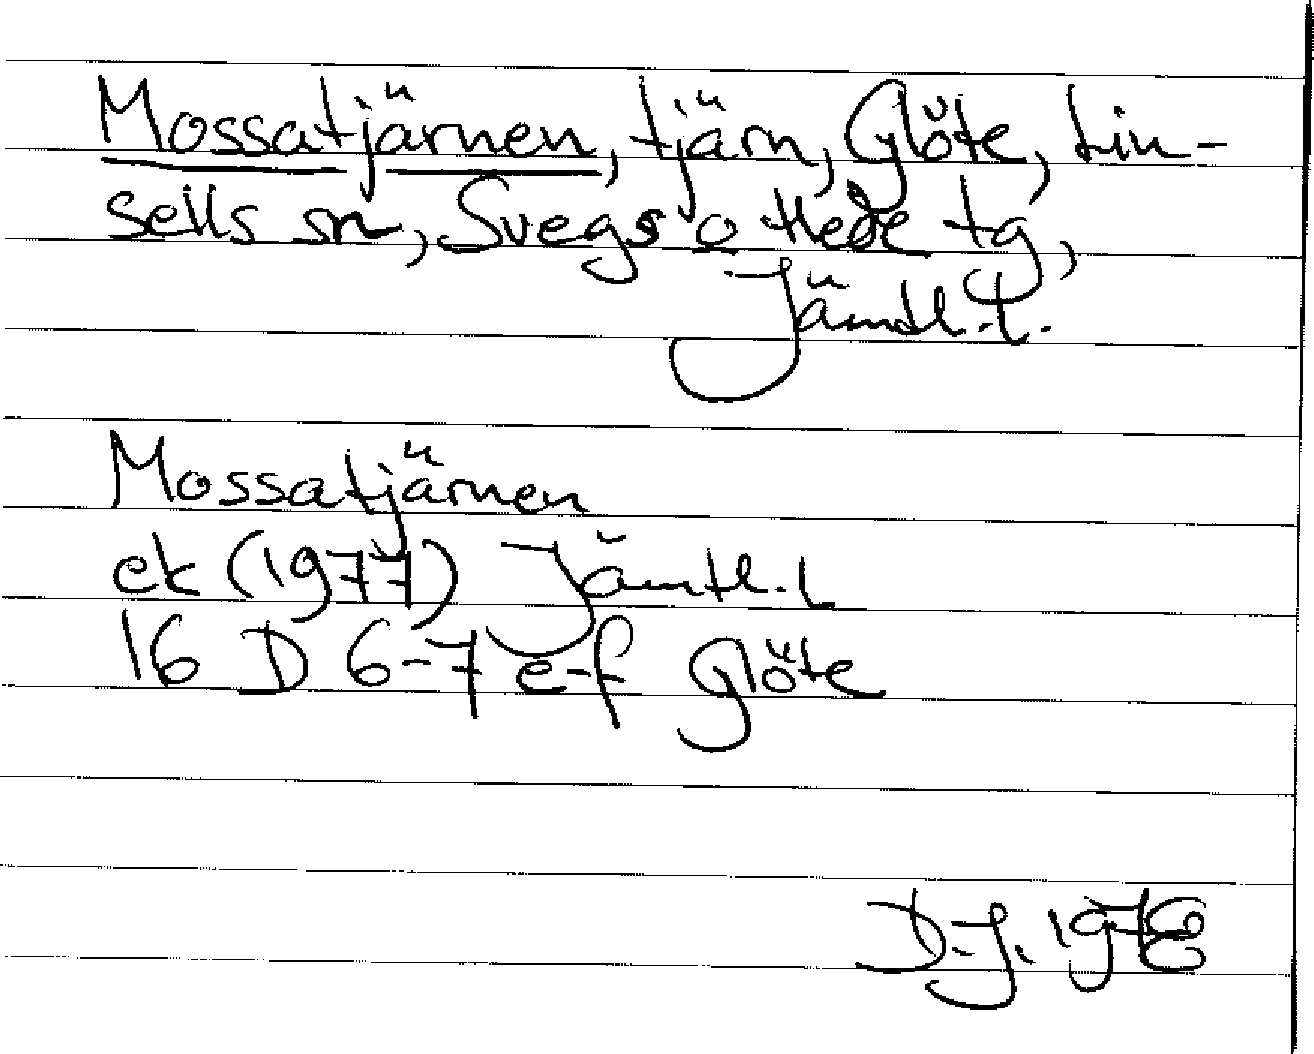 Mossatjärnen, tjärn, Glöte, Lin-
sells sn, Svegs o Hede tg,
Jämtl. l.
Mossatjärnen
ek (1977) Jämtl. l
16 D 6-7 e-f Glöte
D.J. 1978